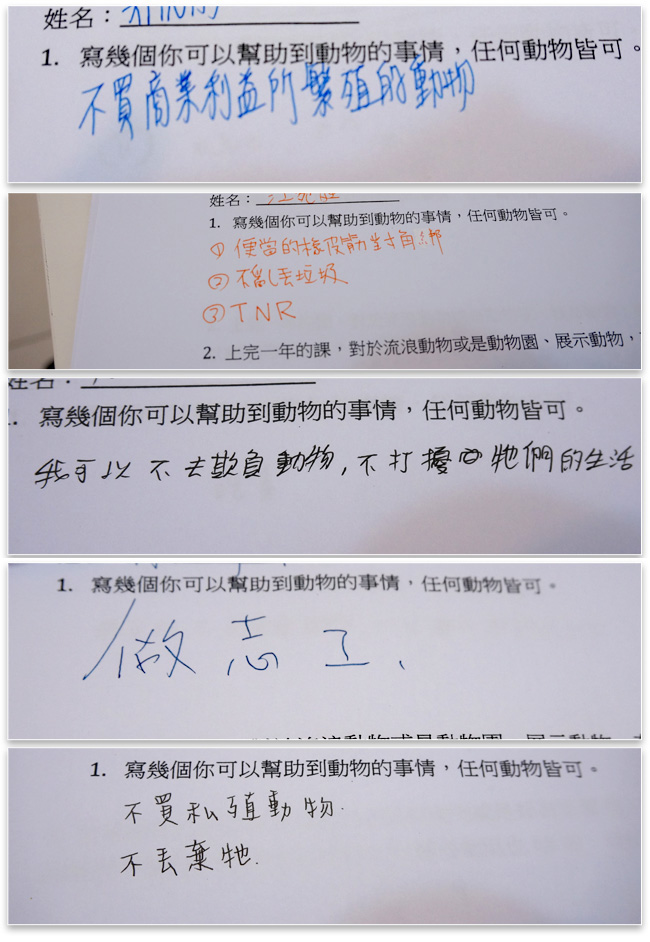 姓名：
1. 寫幾個你可以幫助到動物的事情，任何動物皆可。
不買商業利益所繁殖的動物
姓名：
1. 寫幾個你可以幫助到動物的事情，任何動物皆可。
①便當的橡皮筋對角綁
②不亂丟垃圾
③TNR
2. 上完一年的課，對於流浪動物或是動物園、展示動物，
姓名：
1. 寫幾個你可以幫助到動物的事情，任何動物皆可。
我可以不去欺負動物,不打擾牠們的生活
1. 寫幾個你可以幫助到動物的事情，任何動物皆可。
做志工、
1. 寫幾個你可以幫助到動物的事情，任何動物皆可。
不買私殖動物.
不丟棄牠.